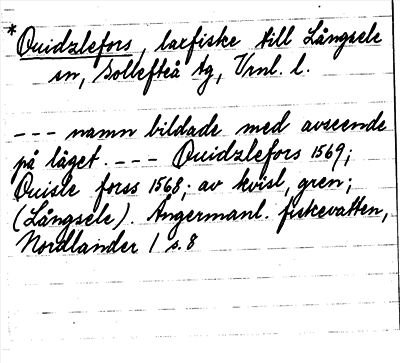 *Quidzlefors, laxfiske till Långsele
sn, Sollefteå tg, Vnl. l.
--- namn bildade med avseende
på läget. --- Quidzlefors 1569;
Quisle forss 1568; av kvisl, gren;
(Långsele). Ångermanl. fiskevatten,
Nordlander 1 s. 8